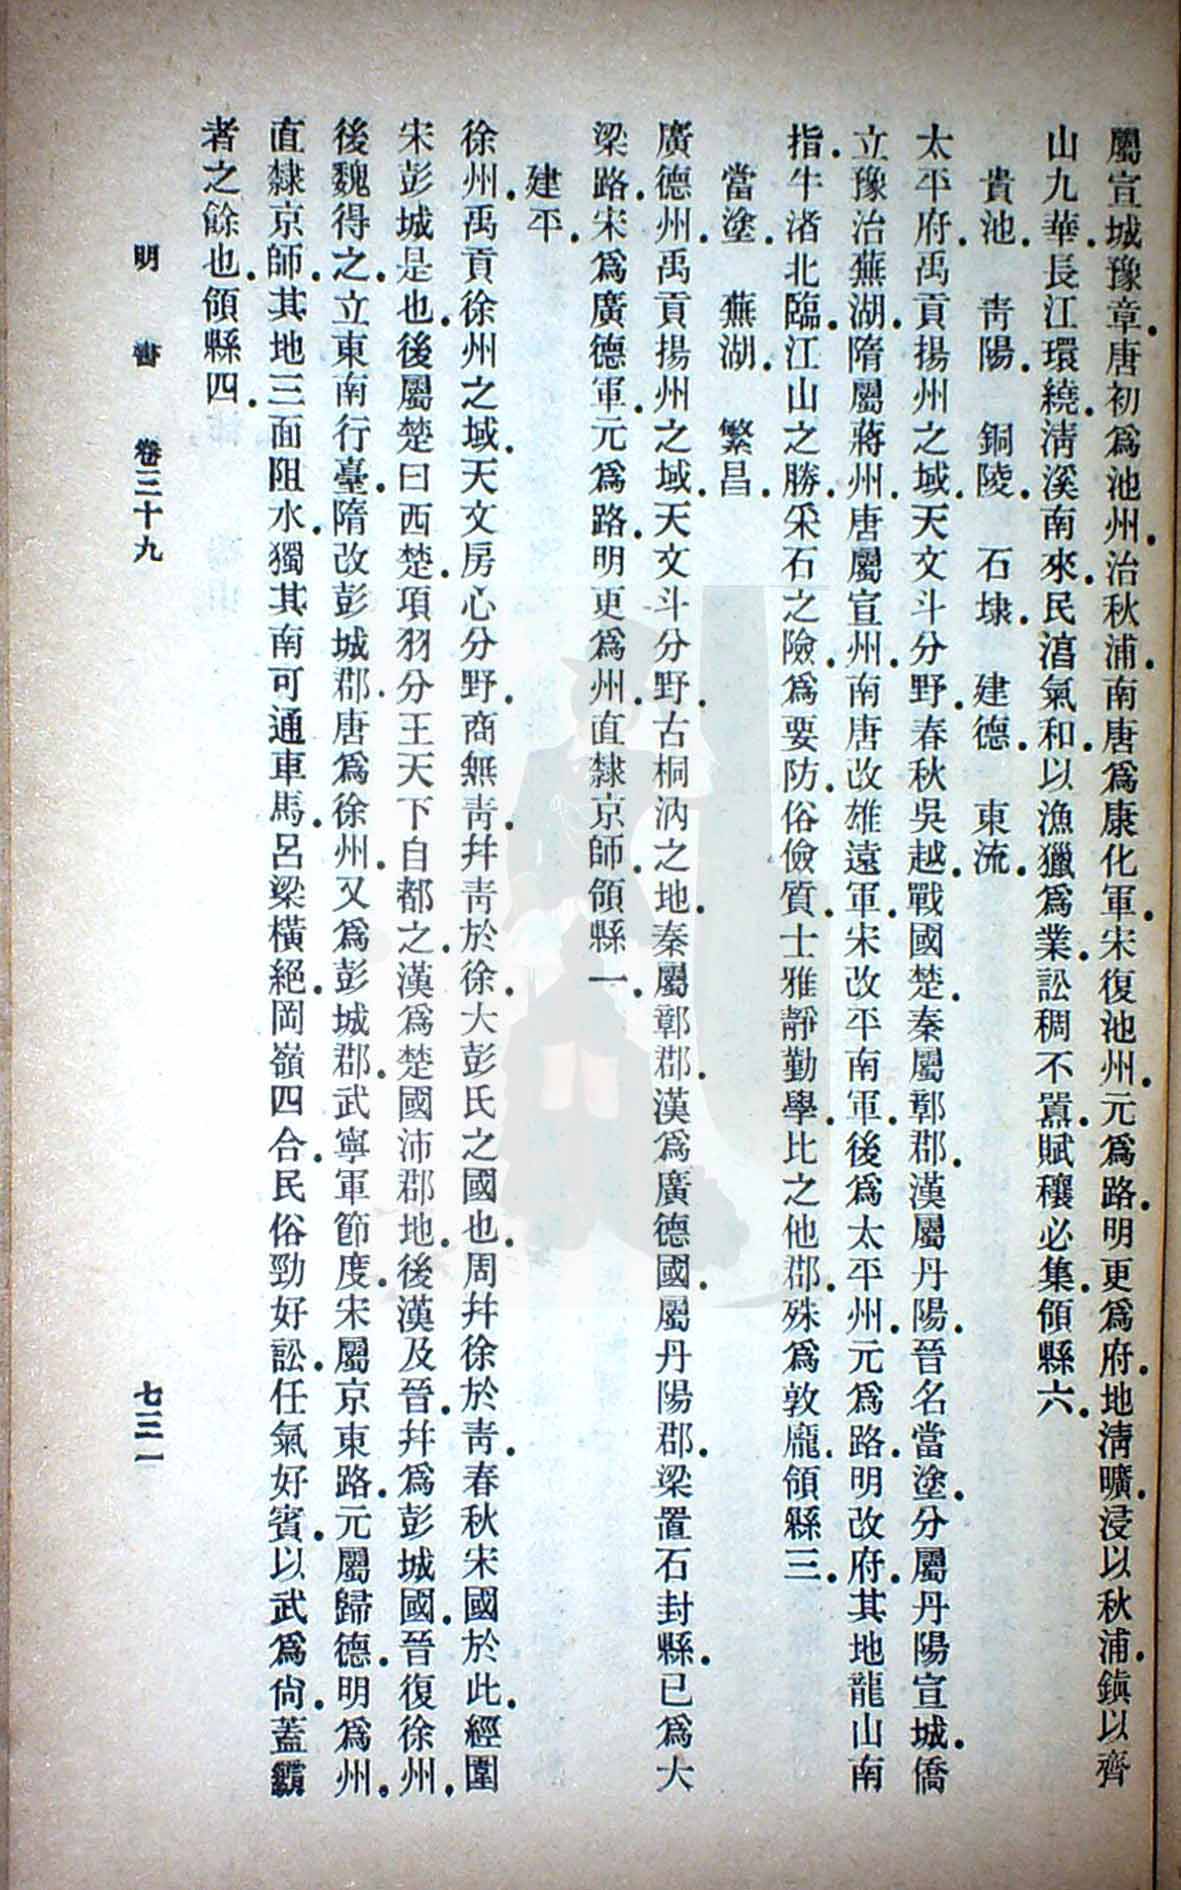 屬宣城豫章．唐初爲池州．治秋浦．南唐爲康化軍．宋復池州．元爲路．明更爲府．地淸曠．浸以秋浦．鎭以齊
山九華．長江環繞．淸溪南來．民淯氣和．以漁獵爲業．訟稠不囂．賦穰必集．領縣六．
貴池．　靑陽．　銅陵．　石埭．　建德．　東流．
太平府．禹貢揚州之域．天文斗分野．春秋吳越．戰國楚．秦屬鄣郡．漢屬丹陽．晉名當塗．分屬丹陽宣城．僑
立豫治蕪湖．隋屬蔣州．唐屬宣州．南唐改雄遠軍．宋改平南軍．後爲太平州．元爲路．明改府．其地龍山南
指．牛渚北臨．江山之勝．采石之險．爲要防．俗儉質．士雅靜勤學．比之他郡．殊爲敦龐．領縣三．
當塗．　蕪湖．　繁昌．
廣德州．禹貢揚州之域．天文斗分野．古桐汭之地．秦屬鄣郡．漢爲廣德國．屬丹陽郡．梁置石封縣．已爲大
梁路．宋爲廣德軍．元爲路．明更爲州．直隸京師．領縣一．
建平．
徐州．禹貢徐州之域．天文房心分野．商無靑．幷靑於徐．大彭氏之國也．周幷徐於靑．春秋宋國於此．經圍
宋彭城是也．後屬楚曰西楚．項羽分王天下自都之．漢爲楚國沛郡地．後漢及晉．幷爲彭城國．晉復徐州．
後魏得之．立東南行臺．隋改彭城郡．唐爲徐州．又爲彭城郡．武寧軍節度．宋屬京東路．元屬歸德．明爲州．
直隸京師．其地三面阻水．獨其南可通車馬．呂梁橫絕．岡嶺四合．民俗勁好訟．任氣好賓．以武爲尙．蓋霸
者之餘也．領縣四．
明　書　卷三十九　七三一